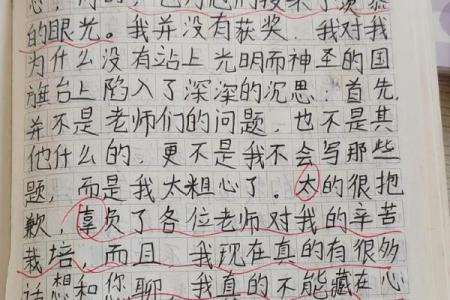 的眼光。我并没有获奖，我对我
为什么没有站上光明而神圣的国
旗台上陷入了深深的沉思。首先，
并不是老师们的问题，也不是其
他什么的，更不是我不会写那些
题，而是我太粗心了。太的很抱
歉，享负了各位老师对我的辛苦
栽培，而且，我现在真的有很多
话想和您聊，我真的不能藏在心